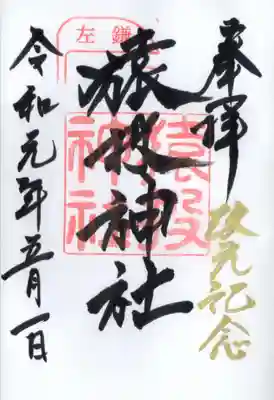 奉拝
改元記念
猿投神社
令和元年五月一日
左鎌
猿投
神社